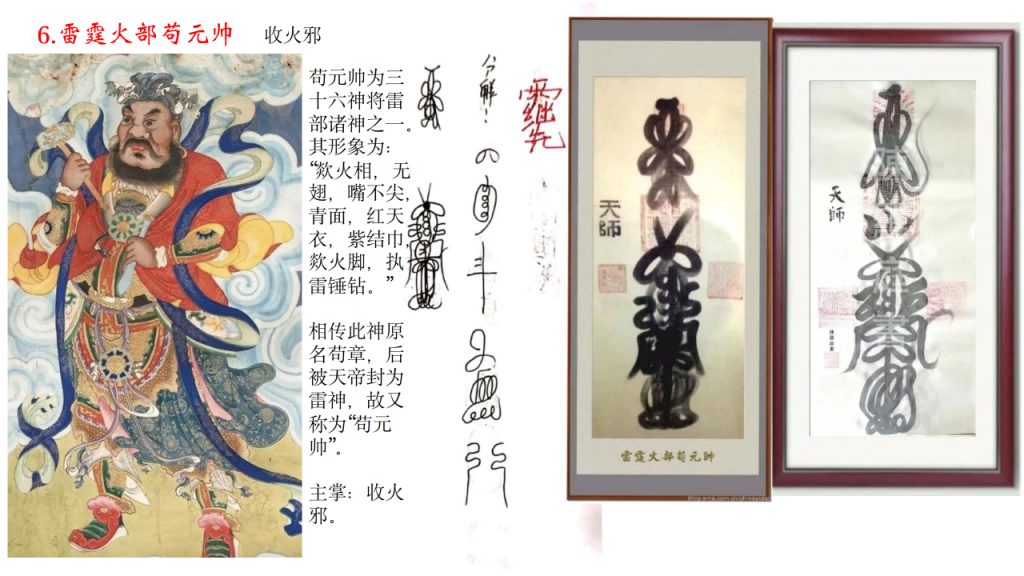 6.雷霆火部苟元帅
收火邪
苟元帅为三
十六神将雷
部诸神之一。
其形象为：
“欻火相，无
翅，嘴不尖，
青面，红天
衣，紫结巾，
欻火脚，执
雷锤钻。”
相传此神原
名苟章，后
被天帝封为
雷神，故又
称为“苟元
帅”。
主掌：收火
邪。
分解：
天師
雷霆火部苟元帅
天師